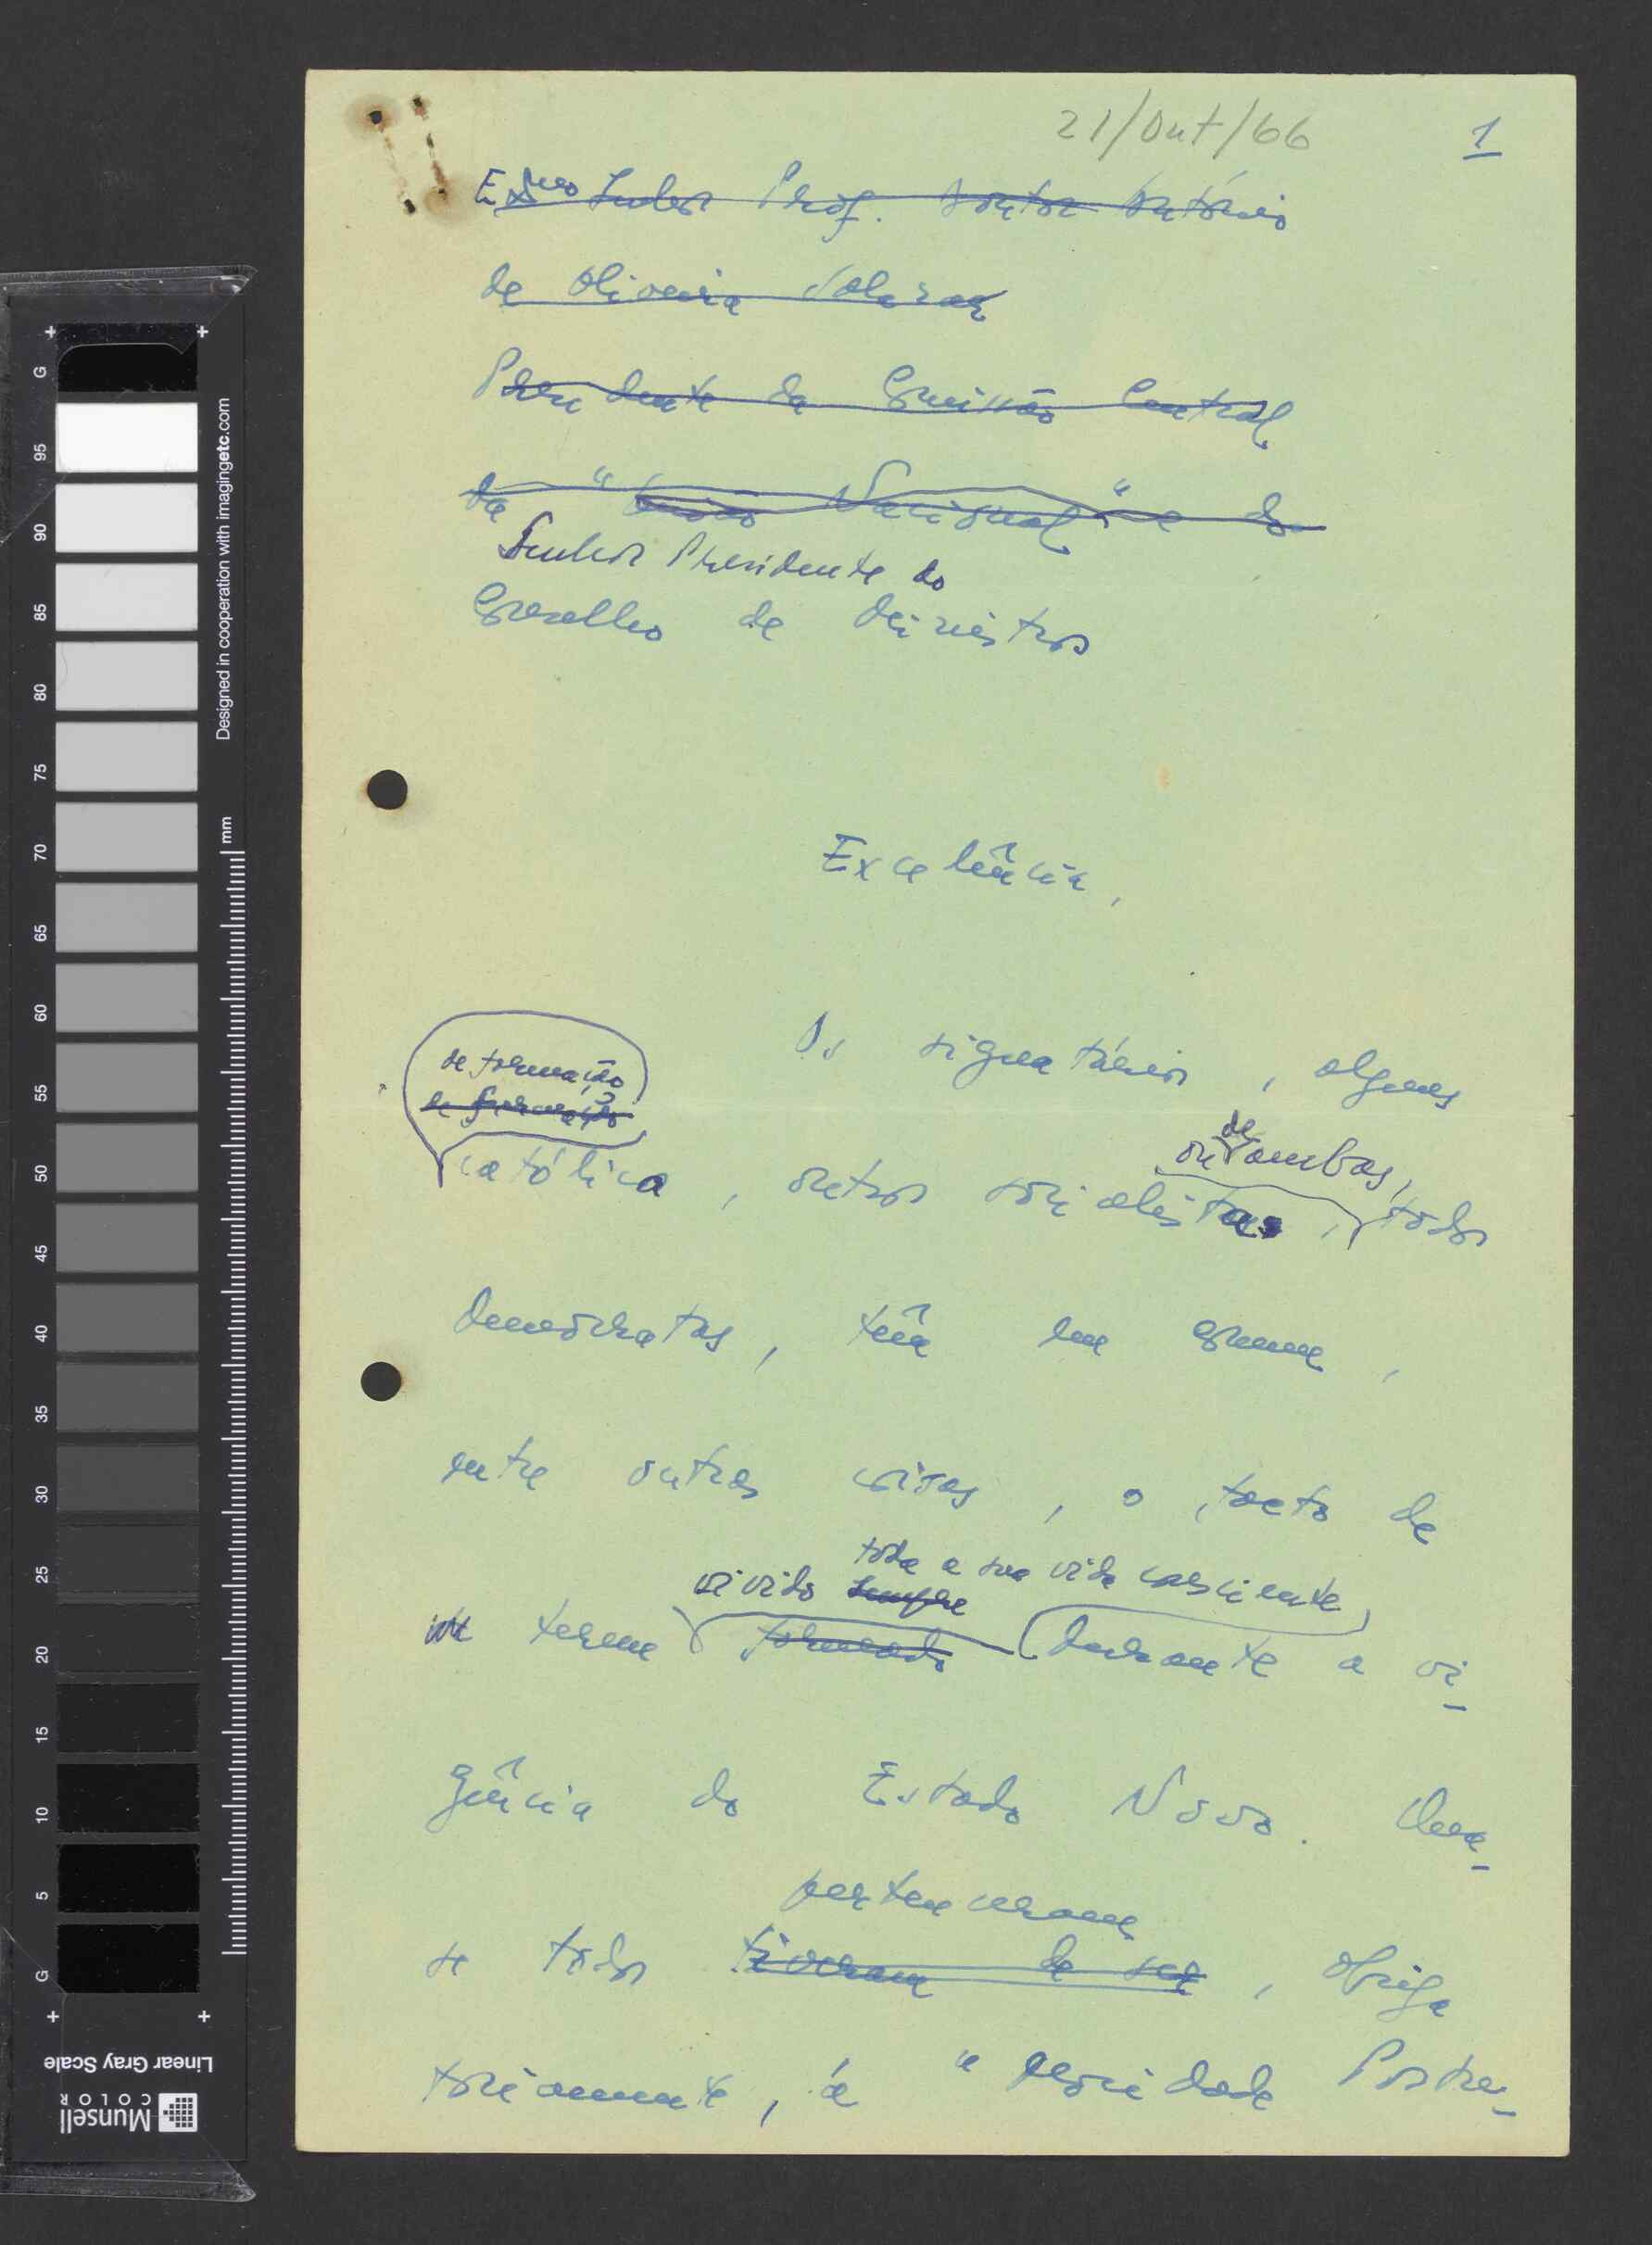 21/Out/66
1
Exmo Senhor Prof. Doutor António
de Oliveira Salazar
Presidente da Comissão Central
da "União Nacional" e do
Senhor Presidente do
Conselho de Ministros
Excelência,
Os signatários, alguns
de formação
de formação
católica, outros socialistas, todos
ou de ambas,
democratas, têm em comum,
entre outras coisas, o facto de
toda a sua vida consciente,
vivido sempre
terem formado durante a vi-
gência do Estado Novo. Qua-
pertenceram
se todos tiveram de ser, obriga
toriamente, à "Mocidade Portu-
G
95
90
85
80
75
70
65
60
55
50
45
40
35
30
25
20
15
10
5
G
mm
Designed in cooperation with imagingetc.com
Linear Gray Scale
Munsell
COLOR